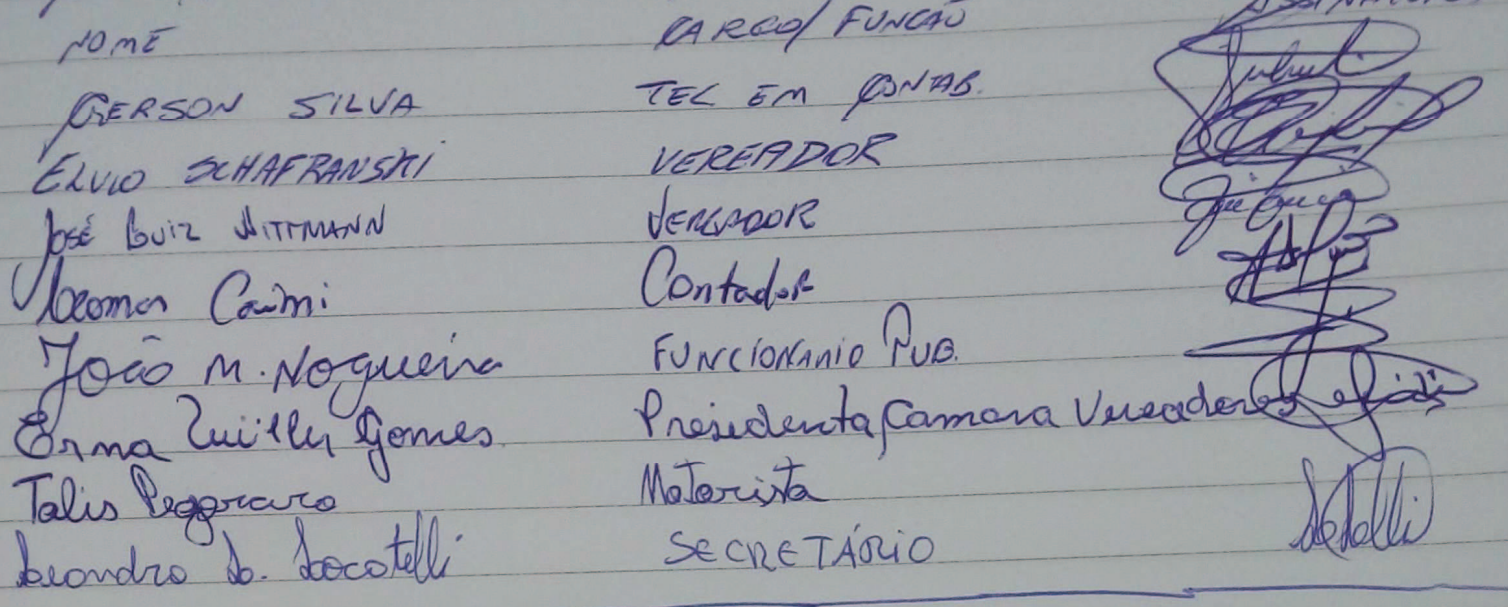 NOME CARGO/ FUNCAO
GERSON SILVA TEC EM CONTAB.
ELVIO SCHAFRANSKI VEREADOR
José Luiz WITTMANN VEREADOR
Caimi Contador
João M. Nogueira FUNCIONARIO PUB.
Erma Gomes Presidenta Camara Vereadores
Talis Pegoraro Motorista
Leandro D. Locatelli SECRETÁRIO